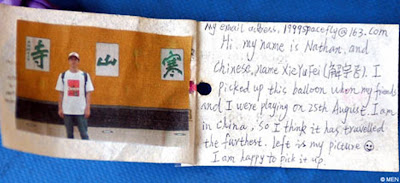 寺 山 寒
My email address. 1999spacefly@163.com
Hi. my name is Nathan, and
Chinese name Xie Yu Fei (解宇). I
picked up this balloon when my friends
and I were playing on 25th August. I am
in China, so I think it has travelled
the furthest. left is my picture
I am happy to pick it up.
© MEN